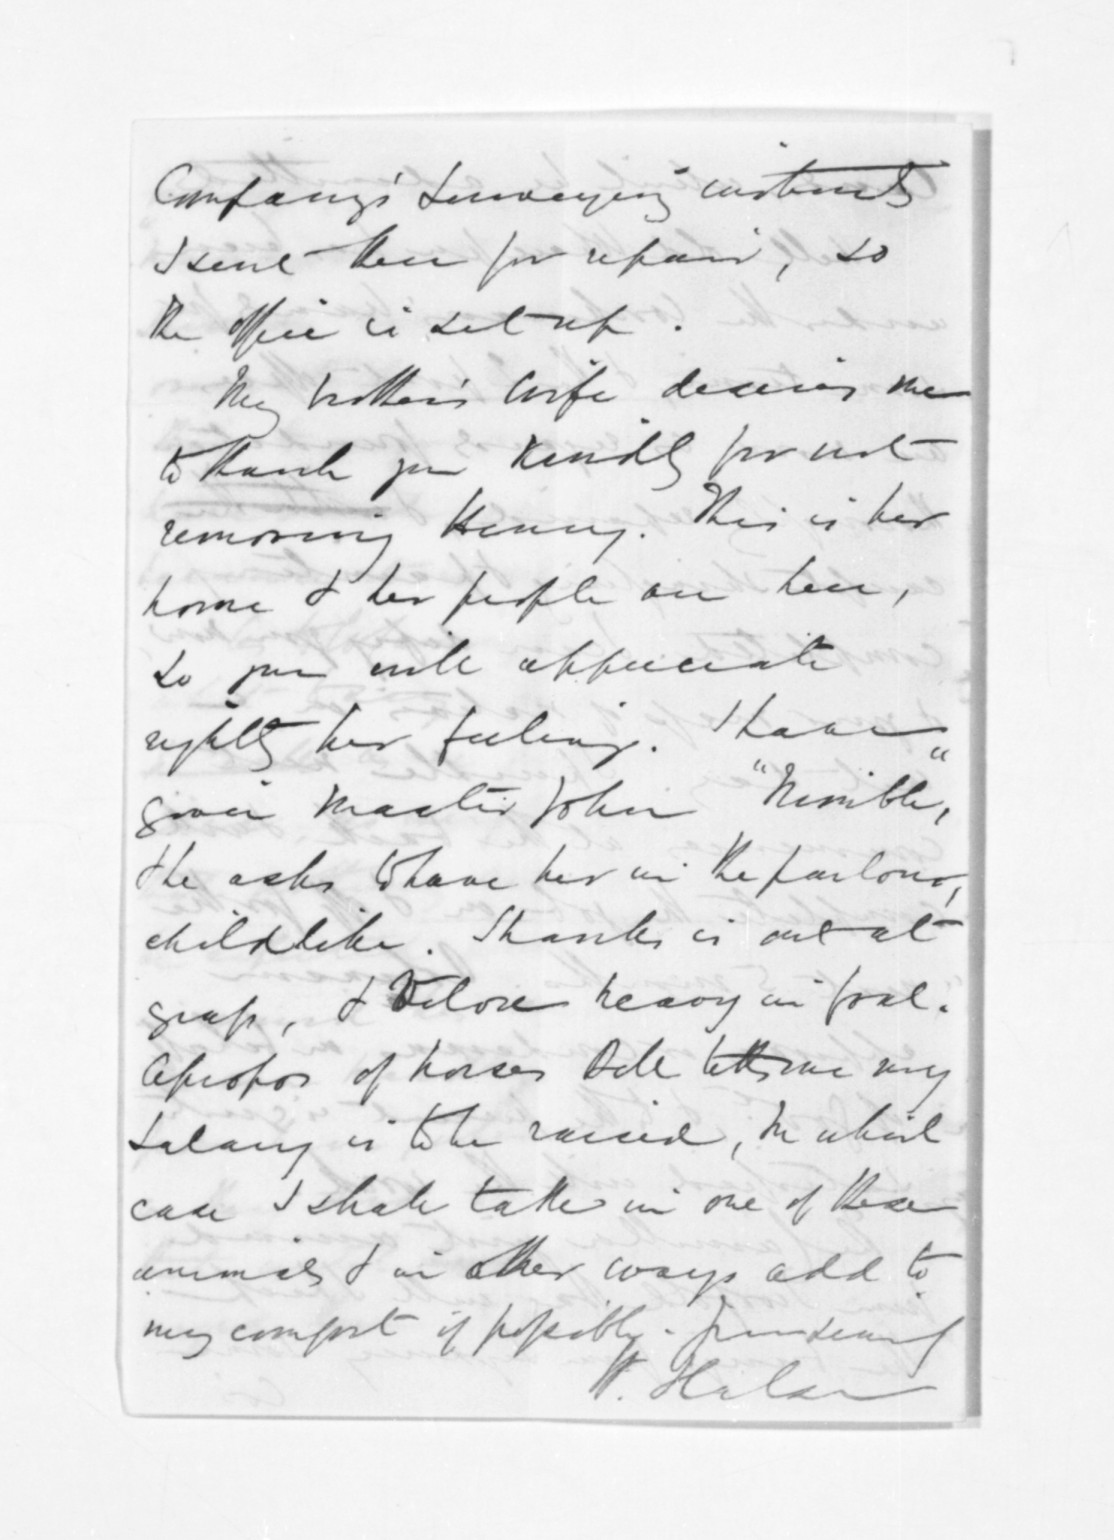 Company's Surveying instruments
I sent them for repair, so
the office is set up.
My brother's wife desires me
to thank you kindly for not
removing Henry. This is her
home & her people are here,
so you will appreciate
rightly her feeling. I have
given Master John "Nimble",
& he asks to have her in the parlour,
childlike. Shanks is out at
grass, & heavy in foal.
Apropos of horses Dell tells me my
salary is to be raised, in which
case I shall take in one of these
animals & in other ways add to
my comfort if possible. Yours
W. Halse